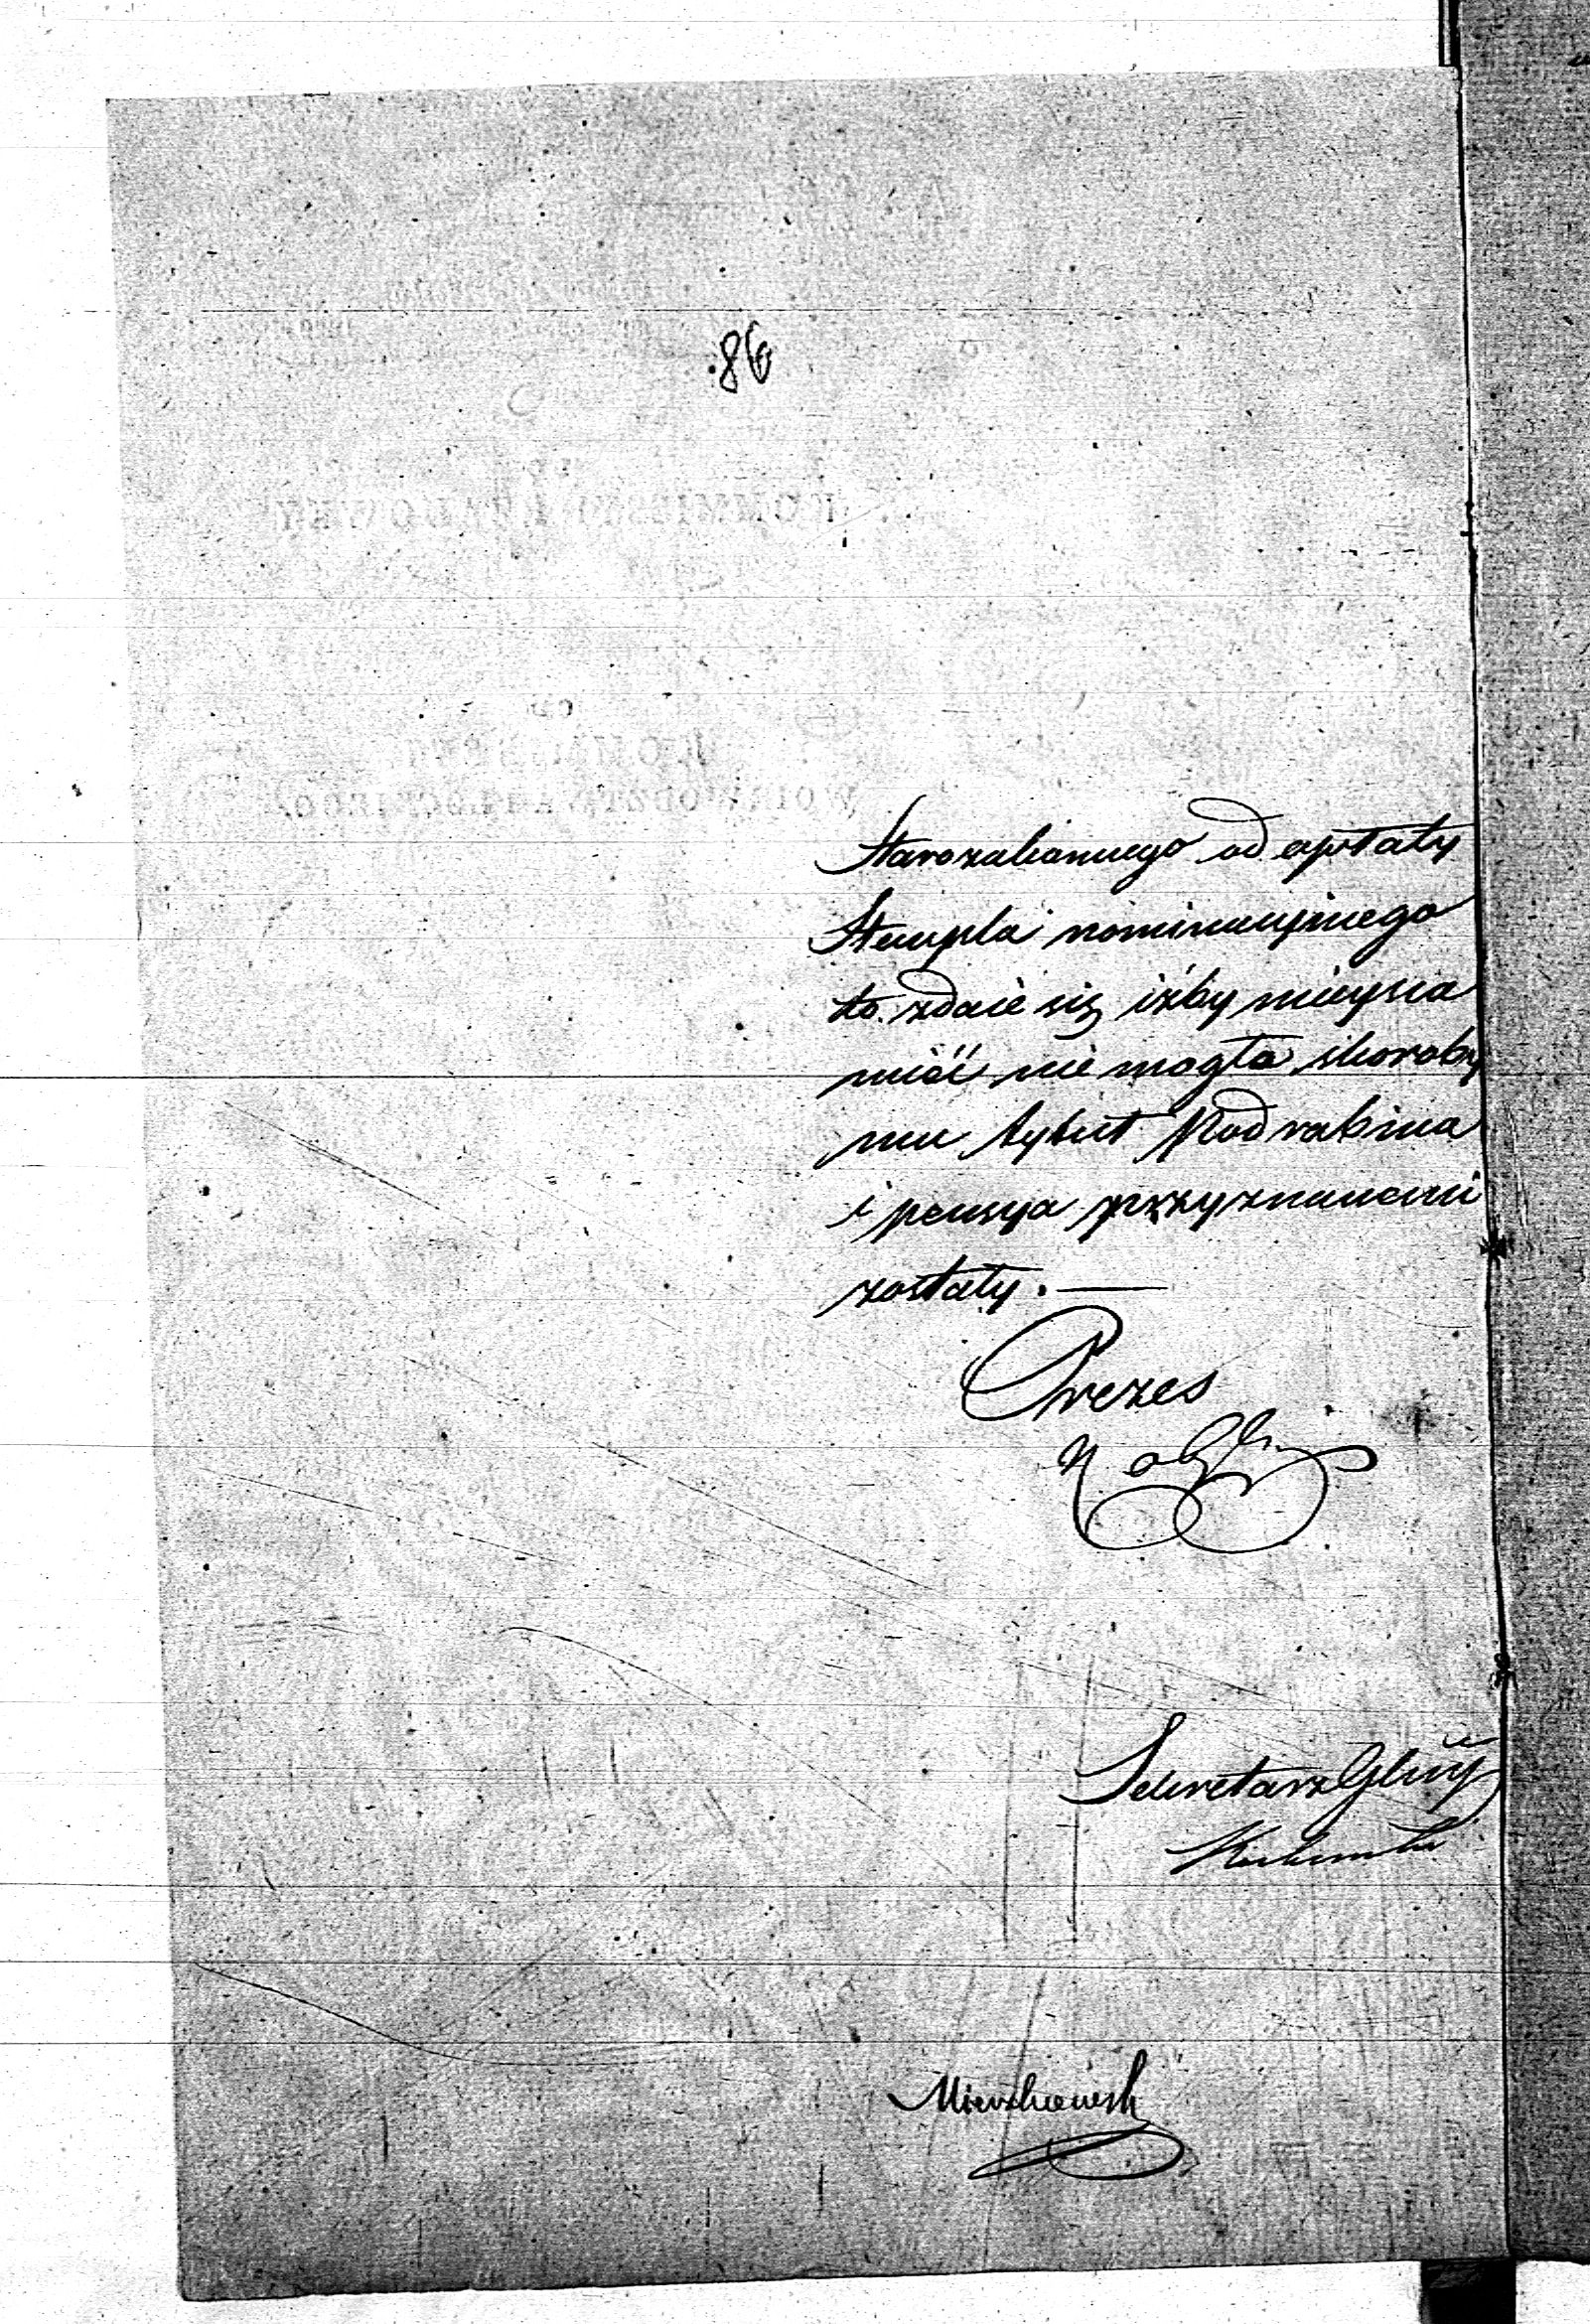 86
Starozakonnego od opłaty
Stempla nominacyinego
to zdaie się iżby mieysca
mieć nie mogła skoroby
mu tytuł Podrabina
i pensya przyznanemi
zostały. —
Prezes
Sekretarz Glny